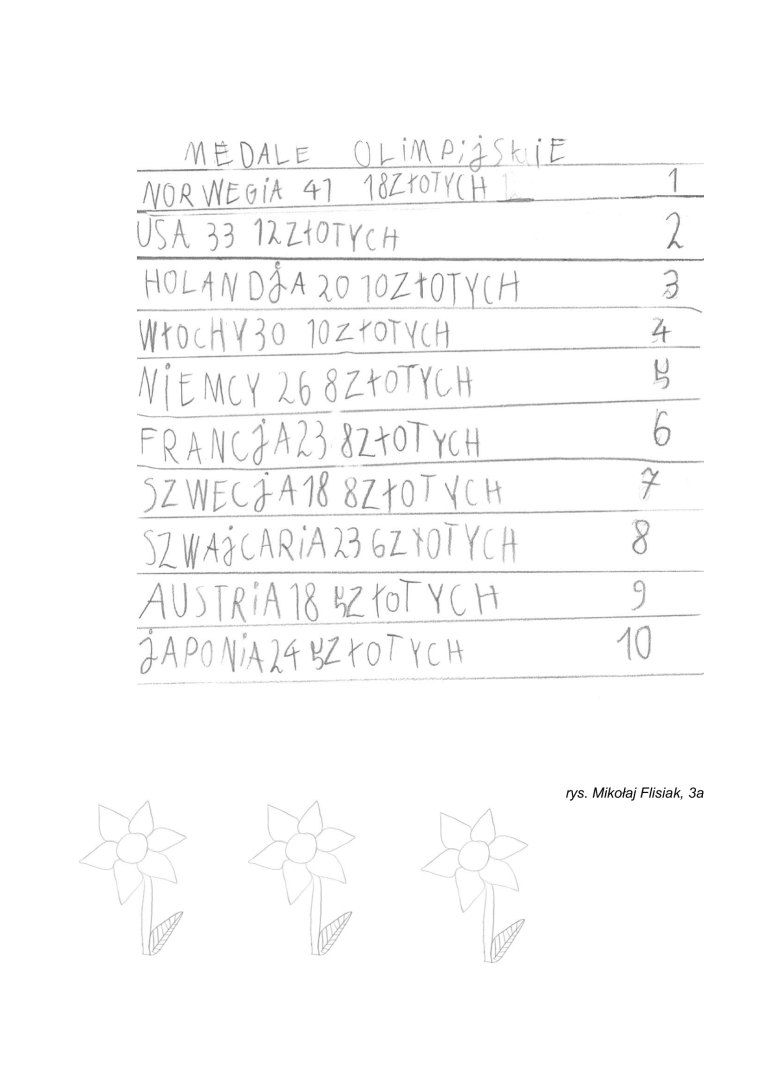 MEDALE OLiMPijSKiE
NORWEGiA 41 18ZŁOTYCH 1
USA 33 12ZŁOTYCH 2
HOLANDjA 20 10ZŁOTYCH 3
WŁOCHY 30 10ZŁOTYCH 4
NiEMCY 26 8ZŁOTYCH 5
FRANCjA 23 8ZŁOTYCH 6
SZWECjA 18 8ZŁOTYCH 7
SZWAjCARiA 23 6ZŁOTYCH 8
AUSTRiA 18 5ZŁOTYCH 9
jAPONiA 24 5ZŁOTYCH 10
rys. Mikołaj Flisiak, 3a